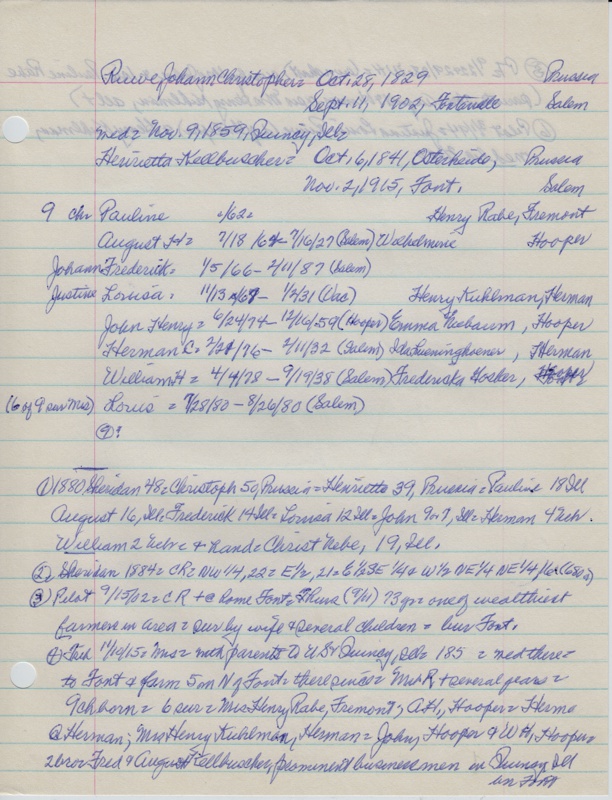 Ruwe, Johann Christopher = Oct. 28, 1829 Prussia
Sept. 11, 1902, Fontenelle Salem
med = Nov. 9, 1859, Quincy, Ills
Henrietta Kellbuscher = Oct. 6, 1841, Osterheide, Prussia
Nov. 2, 1915, Font. Salem
9 chr Pauline /62 = Henry Rabe, Fremont
August H = 7/18/64 - 7/16/27 (Salem) Wilhelmine Hooper
Johann Frederick = 1/5/66 - 2/11/87 (Salem)
Justine Louisa = 11/13/67 - 1/2/31 (Vac) Henry Kuhlman, Herman
John Henry = 6/24/74 - 12/16/59 (Hooper) Emma Niebaum, Hooper
Herman C. = 2/21/76 - 2/11/32 (Salem) Ida Lueninghoener, Herman
William H = 4/4/78 - 9/19/38 (Salem) Fredericka Hosker, Hooper
(6 of 9 sur Mrs) Louis = 7/28/80 - 8/26/80 (Salem)
9?
① 1880 Sheridan 48 = Christoph 50, Prussia = Henrietta 39, Prussia = Pauline 18 Ill
August 16, Ill = Frederick 14 Ill = Louisa 12 Ill = John 9 or 7, Ill = Herman 4 Nebr.
William 2 Nebr = & hand = Christ Rebe, 19, Ill.
② Sheridan 1884 = CR = NW 1/4, 22 = E 1/2, 21 = E 1/2 SE 1/4 & W 1/2 NE 1/4 NE 1/4, 16 (680 a)
③ Pilot 9/15/02 = C R + @ home Font = Thurs (9/11) 73 yr = one of wealthiest
farmers in area = sur by wife & several children = bur Font.
④ Trib 11/10/15 = Mrs = with parents to US & Quincy, Ills 185 = med there =
to Font & farm 5 m N of Font = there since = Mr R + several years =
9 ch born = 6 sur = Mrs Henry Rabe, Fremont; A.H., Hooper = Herma
@ Herman; Mrs Henry Kuhlman, Herman = John, Hooper & W H, Hooper =
2 bro = Fred & August Kellbuscher, prominent businessmen in Quincy Ill